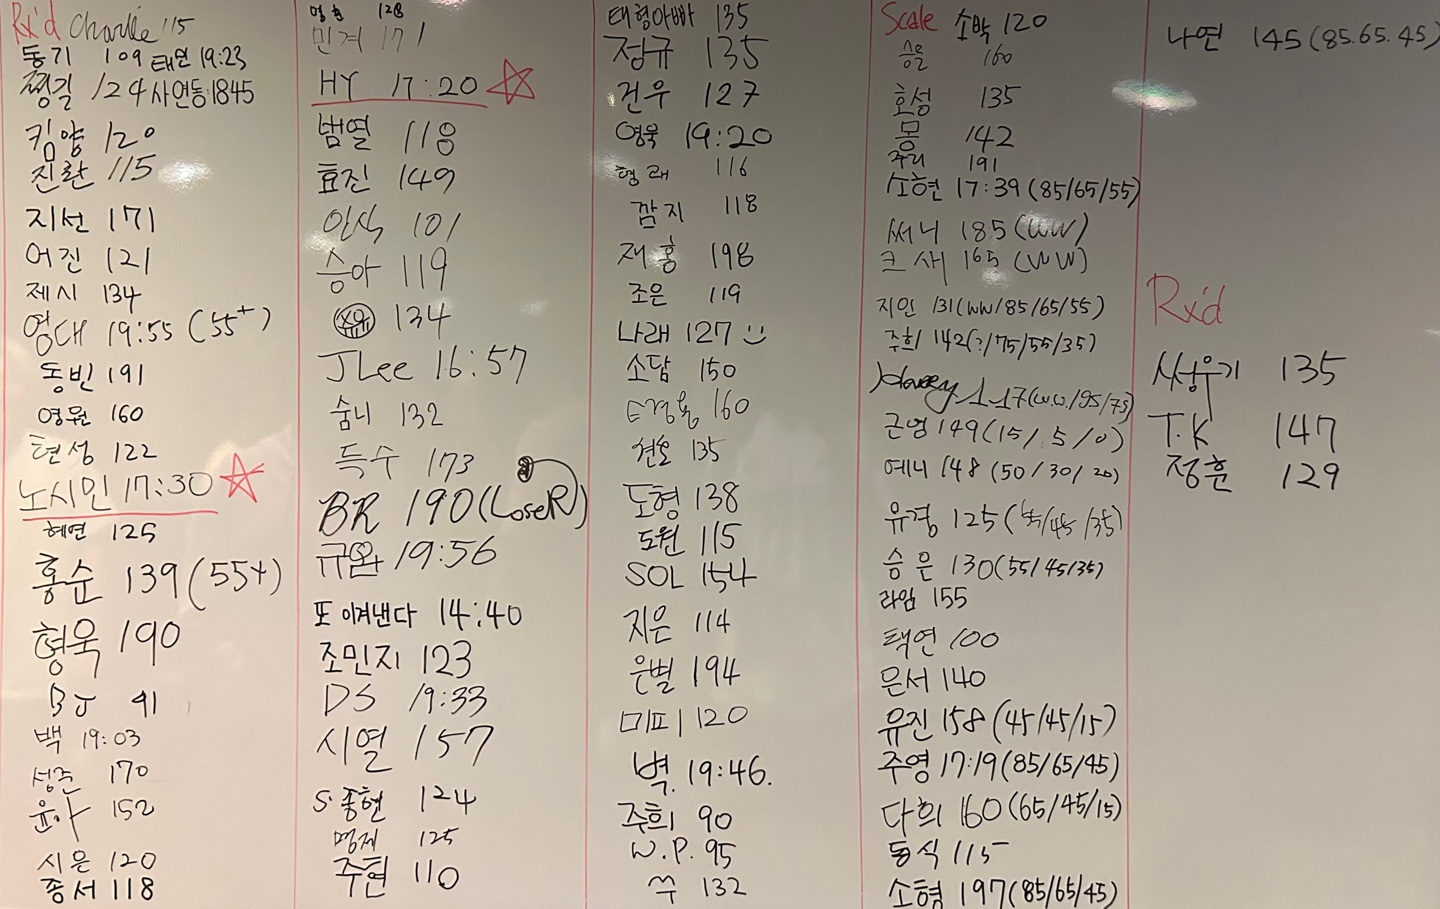 Rx'd Charlie 115
동기 109 태연 19:23
쩡길 124 사연동 1845
킴양 120
진란 115
지선 171
어진 121
제시 134
영대 19:55 (55+)
동빈 191
영원 160
현성 122
노시민 17:30
혜연 125
홍순 139 (55+)
형욱 190
BJ 91
백 19:03
성준 170
윤아 152
시은 120
종서 118
128
민겨 171
HY 17:20
범열 118
효진 149
인식 101
승아 119
134
JLee 16:57
숨니 132
득수 173
BR 190 (LoseR)
19:56
또 이겨낸다 14:40
조민지 123
DS 19:33
시열 157
S.종현 124
명제 125
주현 110
태형아빠 135
정규 135
건우 127
영욱 19:20
형래 116
깜지 118
재홍 198
조은 119
나래 127
소담 150
160
건호 135
도형 138
도원 115
SOL 154
지은 114
은별 194
미피 120
벽. 19:46.
주희 90
W.P. 95
쑤 132
Scale 소박 120
승은 160
효성 135
몽 142
주리 191
소현 17:39 (85/65/55)
써니 185 (WW)
크새 165 (WW)
지인 131 (WW/85/65/55)
주희 142 (?/75/55/35)
117 (W.W./95/75)
근영 149 (15/.5/0)
예니 148 (50/30/20)
유경 125 /45/35)
승은 130 (55/45/35)
라임 155
택연 100
은서 140
유진 158 (45/45/15)
주영 17:19 (85/65/45)
다희 160 (65/45/15)
동식 115
소형 197 (85/65/45)
나연 145 (85.65.45)
Rx'd
135
T.K 147
정훈 129